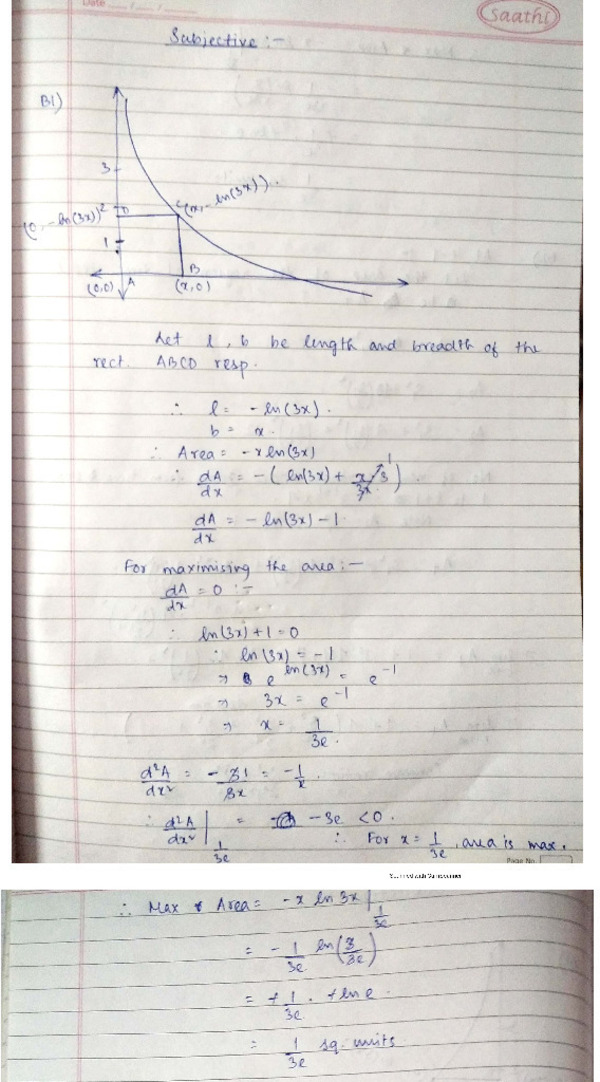 Date
Saathi
Subjective :-
B1)
3
(0, -ln(3x)) 2 D
C(x, -ln(3x))
1
(0,0) A B
(x,0)
Let l, b be length and breadth of the
rect. ABCD resp.
∴ l = -ln(3x).
b = x.
∴ Area = -x ln(3x)
∴ dA/dx = -(ln(3x) + x/3x · 3) 1
dA/dx = -ln(3x) - 1
For maximising the area :-
dA/dx = 0 :-
∴ ln(3x) + 1 = 0
∴ ln(3x) = -1
⇒ e^ln(3x) = e^-1
⇒ 3x = e^-1
⇒ x = 1/3e.
d²A/dx² = -31/3x = -1/x.
∴ d²A/dx² |1/3e = -3e < 0.
∴ For x = 1/3e, area is max.
Page No.
Scanned with CamScanner
∴ Max Area = -x ln 3x |1/3e
= -1/3e ln(3/3e)
= +1/3e · +ln e.
= 1/3e sq. units